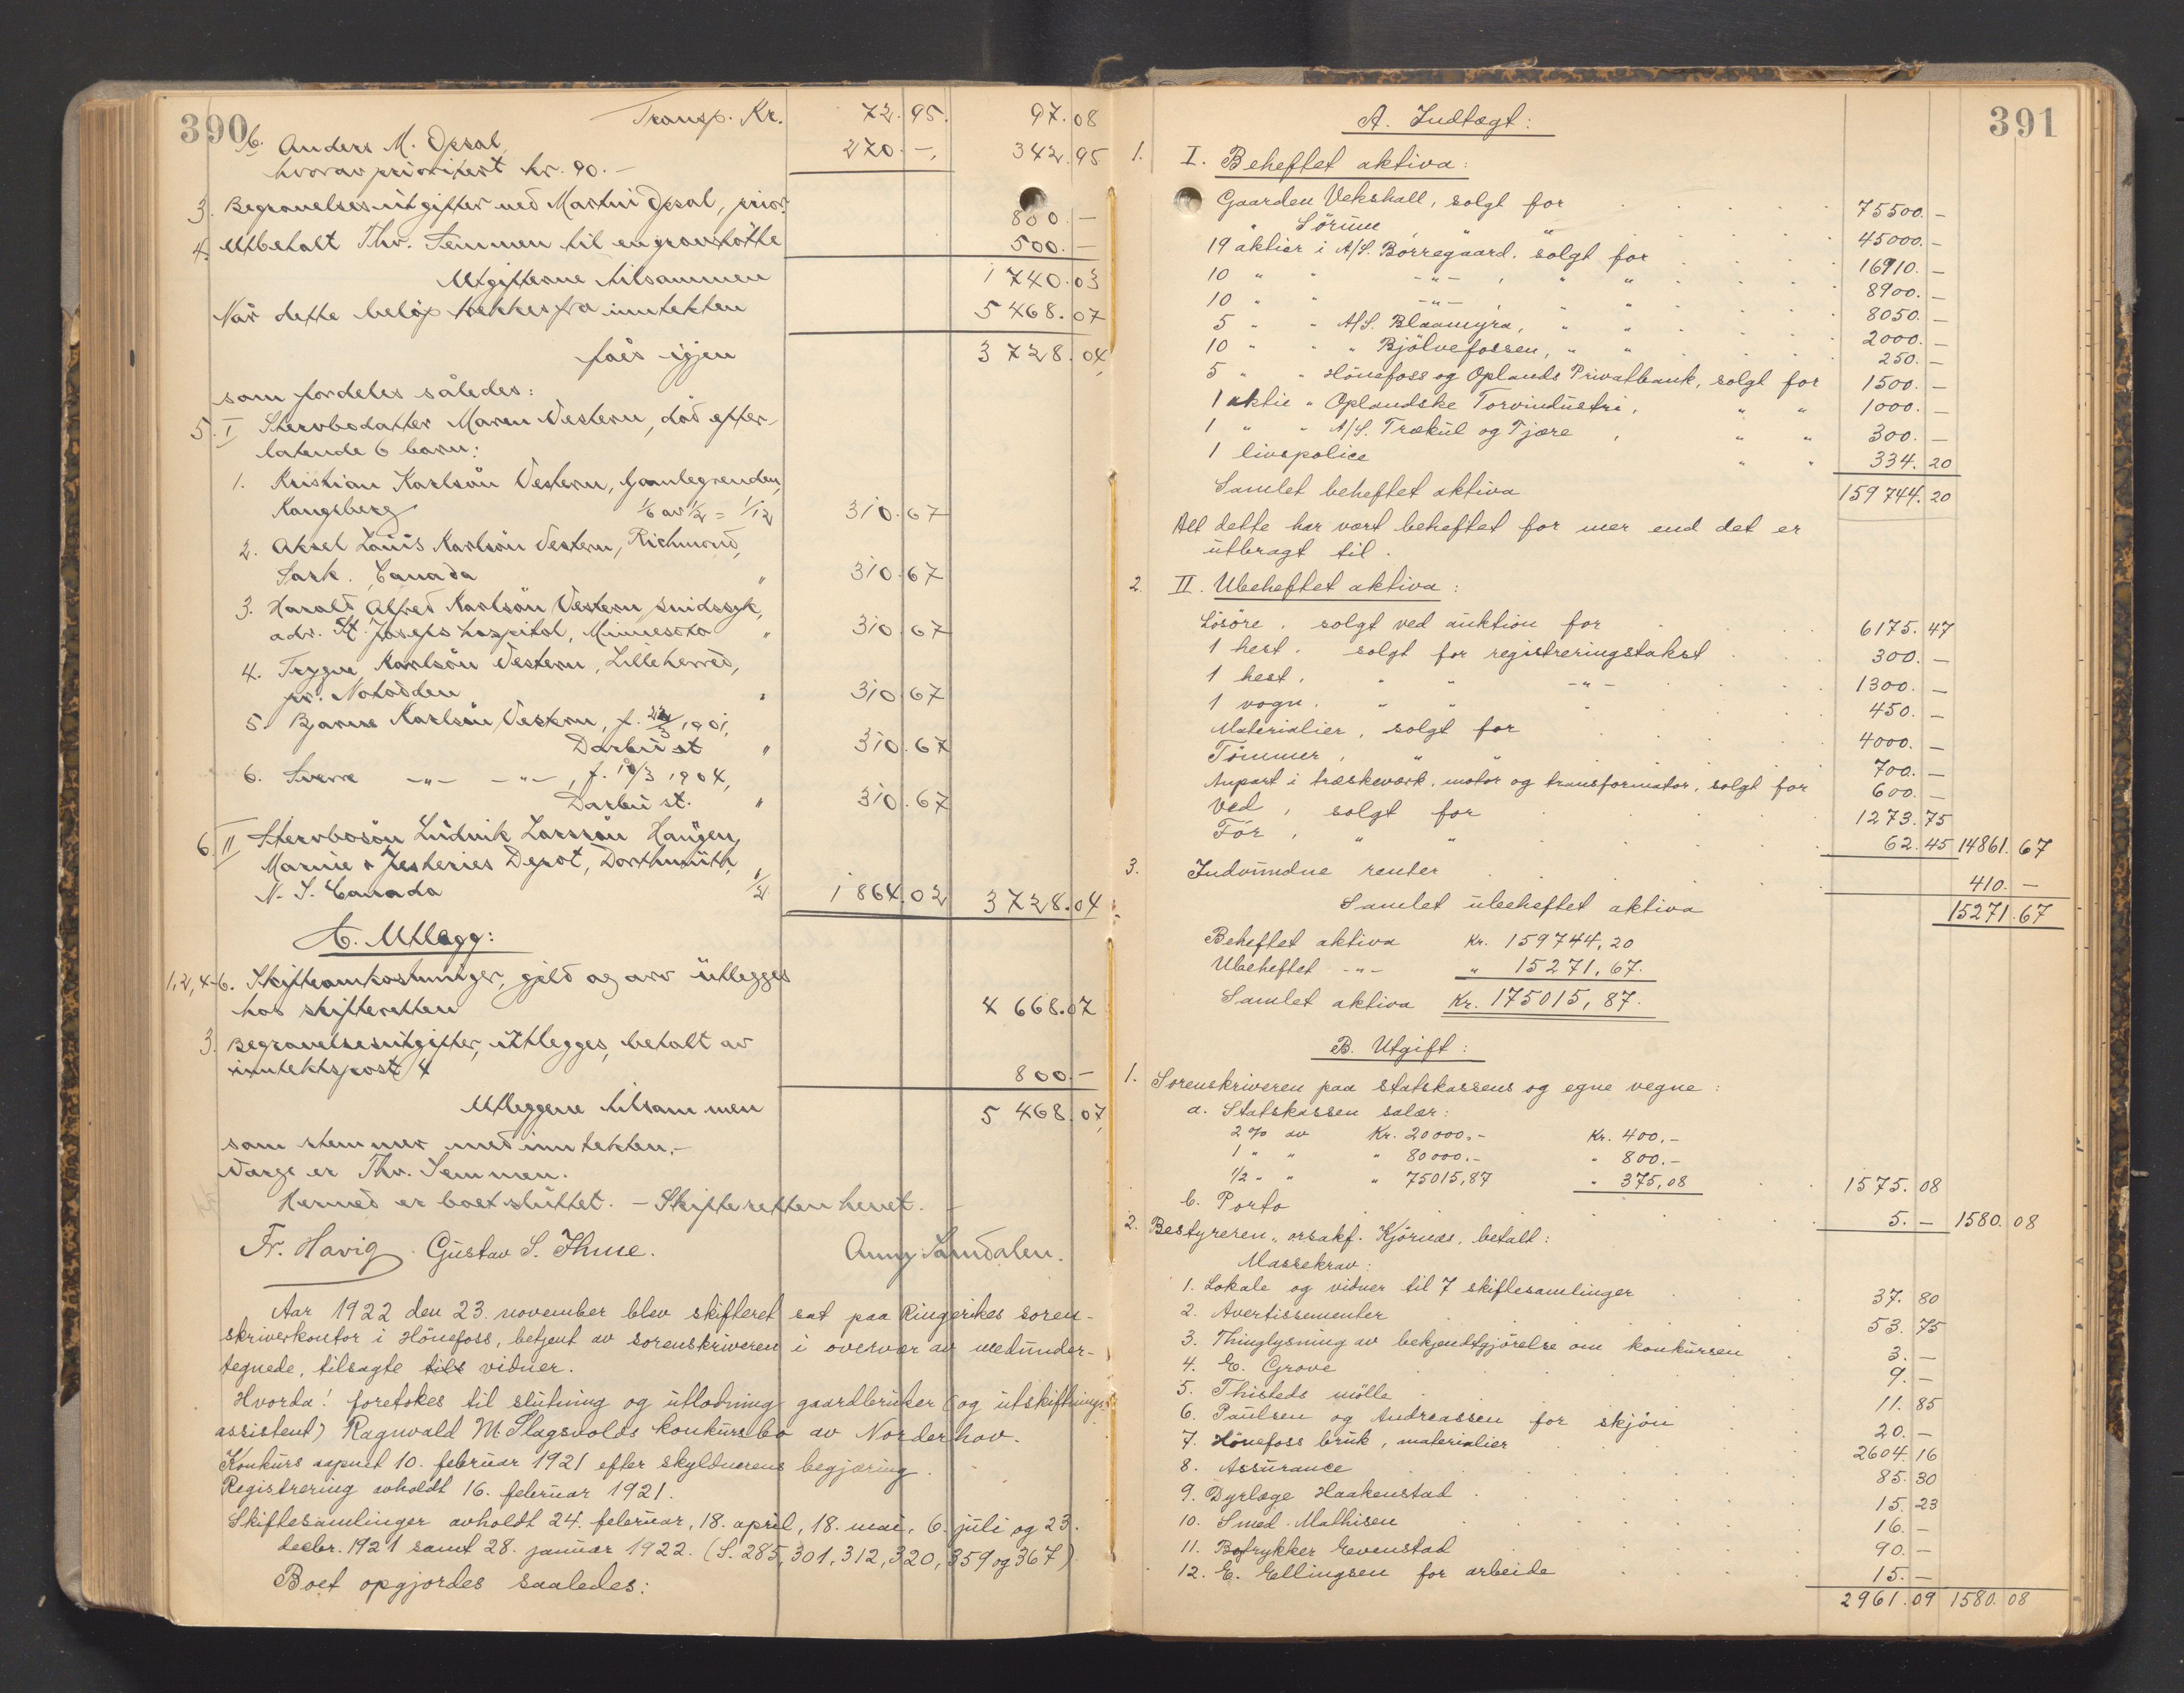 390
Transp. Kr. 72.95. 97.08
b. Anders M. Opsal, 270.-. 342.95
hvorav prioritert kr. 90.-
3. Begravelsesutgifter ved Martin Opsal, prior. 800.-
4. Utbetalt Thv. Semmen til en gravstøtte 500.-
Utgifterne tilsammen 1740.03
Når dette beløp trekkes fra inntekten 5468.07
fåes igjen 3728.04
som fordeles således:
5. I Stervbodatter Maren Vestern, død efter-
latende 6 barn:
1. Kristian Karlsøn Vestern, Gamlegrenden,
Kongsberg 1/6 av 1/2 = 1/12 310.67
2. Aksel Louis Karlsøn Vestern, Richmond,
Sask. Canada " 310.67
3. Harald Alfred Karlsøn Vestern sindssyk,
adr. St. Josephs hospital, Minnesota " 310.67
4. Trygve Karlsøn Vestern, Lilleherred,
pr. Notodden " 310.67
5. Bjarne Karlsøn Vestern, f. 1901,
Darbu st " 310.67
6. Sverre -"- -"-, f. 19/3 1904,
Darbu st. " 310.67
6. II Stervbosøn Ludvik Larssøn Haugen,
Marine & Fesheries Depot, Dorthmuth,
N. S. Canada 1/2 1864.02 3728.04
C. Utlegg:
1,2,4-6. Skifteomkostninger, gjeld og arv utlegges
hos skifteretten 4668.07
3. Begravelsesutgifter, utlegges, betalt av
inntektspost 4 800.-
Utleggene tilsammen 5468.07
som stemmer med inntekten.-
Verge er Thv. Semmen.
Hermed er boet sluttet. - Skifteretten hevet. -
Fr. Havig. Gustav S. Thue. Anny Sandalen.
Aar 1922 den 23. november blev skifteret sat paa Ringerikes soren-
skriverkontor i Hönefoss, betjent av sorenskriveren i overvær av medunder-
tegnede, tilsagte tils vidner.
Hvorda! foretokes til slutning og utlodning gaardbruker (og utskiftnings-
assistent) Ragnvald M. Slagsvolds konkursbo av Norderhov.
Konkurs aapnet 10. februar 1921 efter skyldnerens begjæring.
Registrering avholdt 16. februar 1921.
Skiftesamlinger avholdt 24. februar, 18. april, 18. mai, 6. juli og 23.
decbr. 1921 samt 28. januar 1922. (S. 285, 301, 312, 320, 359 og 367)
Boet opgjordes saaledes:
391
A. Indtægt:
1. I. Beheftet aktiva:
Gaarden Vekshall, solgt for 75500.-
" Sörum, " " 45000.-
19 aktier i A/S. Borregaard, solgt for 16910.-
10 " " -"- , " " 8900.-
10 " " -"- , " " 8050.-
5 " " A/S. Blaamyra, " " 2000.-
10 " " " Bjölvefossen, " " 250.-
5 " " Hönefoss og Oplands Privatbank, solgt for 1500.-
1 aktie " Oplandske Torvindustri, " " 1000.-
1 " " A/S. Trækul og Tjære, " " 300.-
1 livspolice " " 334.20
Samlet beheftet aktiva 159744.20
Alt dette har vært beheftet for mer end det er
utbragt til.
2. II. Ubeheftet aktiva:
Lösöre, solgt ved auktion for 6175.47
1 hest, solgt for registreringstakst 300.-
1 hest, " " -"- 1300.-
1 vogn, " " " 450.-
Materialier, solgt for 4000.-
Tömmer, " " 700.-
Anpart i træskeverk, motor og transformator, solgt for 600.-
Ved, solgt for 1273.75
Fór, " " 62.45 14861.67
3. Indvundne renter 410.-
Samlet ubeheftet aktiva 15271.67
Beheftet aktiva Kr. 159744,20
Ubeheftet -"- " 15271,67.
Samlet aktiva Kr. 175015,87.
B. Utgift:
1. Sorenskriveren paa statskassens og egne vegne:
a. Statskassen salær:
2 % av Kr. 20000,- Kr. 400,-
1 " " " 80000,- " 800.-
1/2 " " " 75015,87 " 375,08 1575.08
b. Porto 5.- 1580.08
2. Bestyreren, orsakf. Kjörnæs, betalt:
Massekrav:
1. Lokale og vidner til 7 skiftesamlinger 37.80
2. Avertissementer 53.75
3. Thinglysning av bekjendtgjörelse om konkursen 3.-
4. E. Grove 9.-
5. Thisteds mölle 11.85
6. Paulsen og Andreassen for skjön 20.-
7. Hönefoss bruk, materialier 2604.16
8. Assurance 85.30
9. Dyrlæge Haakenstad 15.23
10. Smed Mathisen 16.-
11. Boktrykker Evenstad 90.-
12. E. Ellingsen for arbeide 15.-
2961.09 1580.08